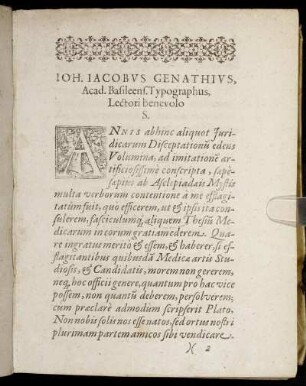 IOH. IACOBVS GENATHIVS,
Acad. Basileens. Typographus,
Lectori benevolo
S.
ANNIS abhinc aliquot Juri-
dicarum Disceptationũ edens
Volumina, ad imitationẽ ar-
tificiosissimè conscripta, sæpè-
sæpius ab Asclepiadeis Mystis
multa verborum contentione à me efflagi-
tatũ fuit, quò efficerem, ut & ipsis ita con-
sulerem, fasciculumq; aliquem Thesiũ Me-
dicarum in eorum gratiam ederem. Qua-
re ingratus meritò & essem, & haberer, si ef-
flagitantibus quibusdã Medicæ artis Stu-
diosis, & Candidatis, morem non gererem,
neq; hoc officii genere, quantum pro hac vice
possem, non quantũ deberem, persolverem;
cum præclarè admodum scripserit Plato,
Non nobis solis nos esse natos, sed ortus nostri
plurimam partem amicos sibi vendicare.
)( 2